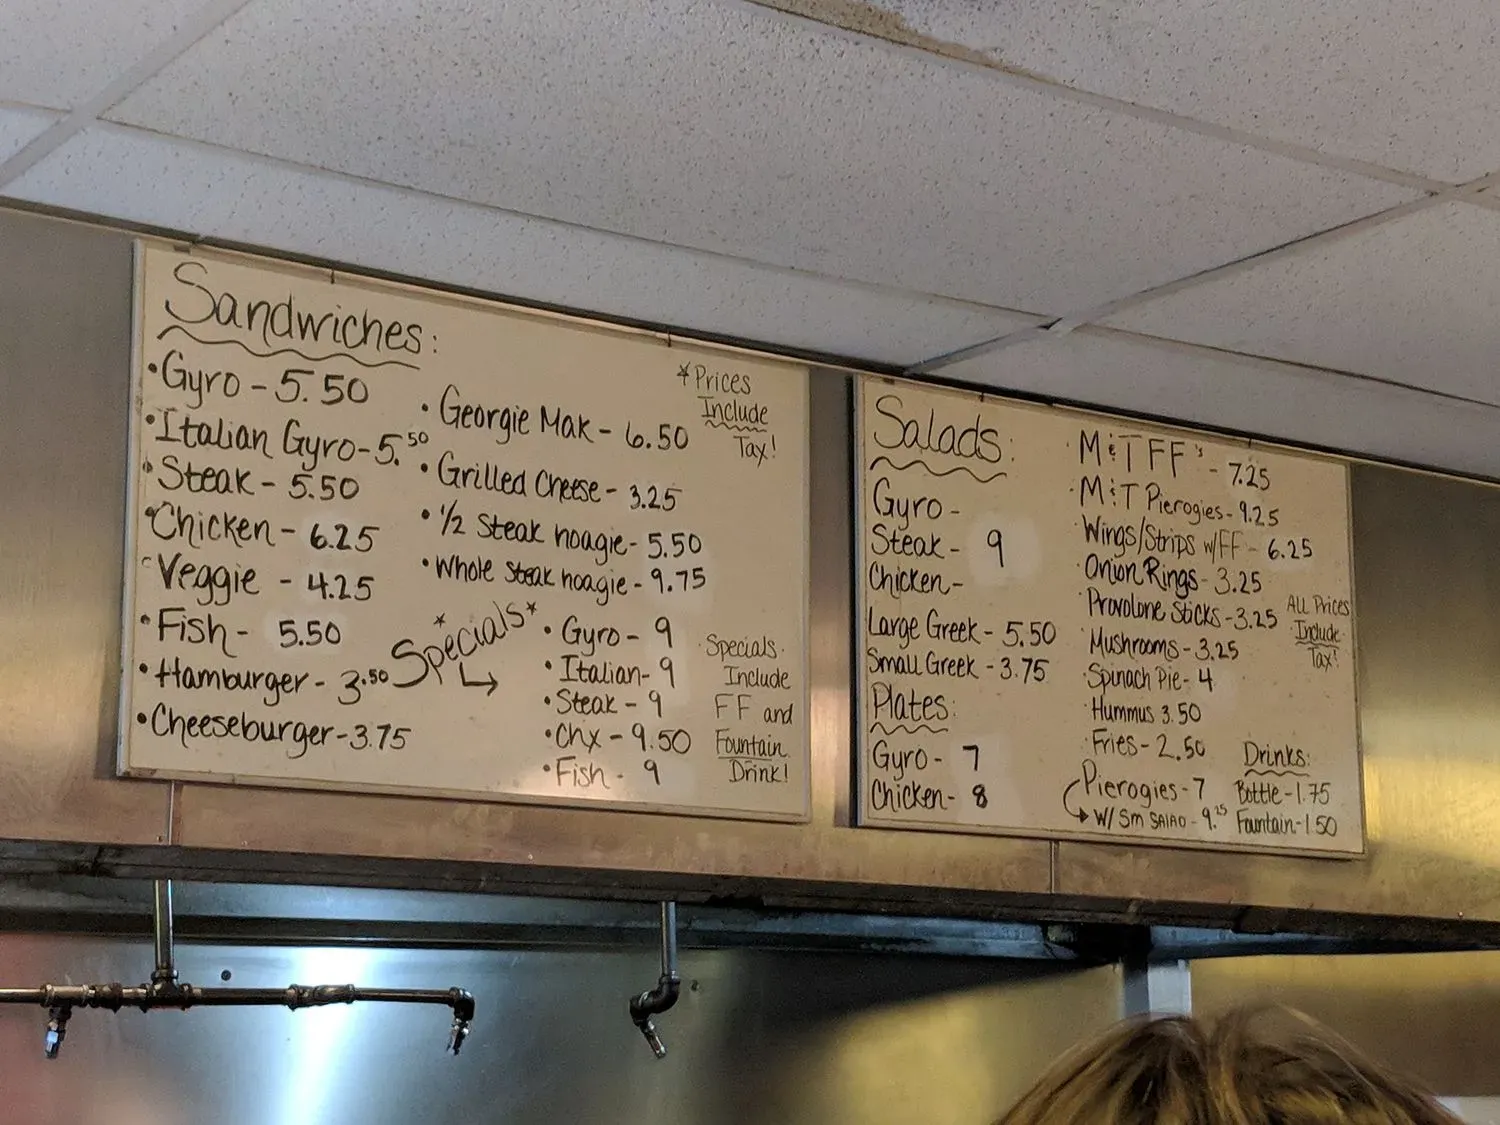 Sandwiches:
• Gyro - 5.50
• Italian Gyro - 5.50
• Steak - 5.50
• Chicken - 6.25
• Veggie - 4.25
• Fish - 5.50
• Hamburger - 3.50
• Cheeseburger - 3.75
• Georgie Mak - 6.50
• Grilled Cheese - 3.25
• 1/2 Steak hoagie - 5.50
• Whole Steak hoagie - 9.75
* Prices
Include
Tax!
*Specials*
• Gyro - 9
• Italian - 9
• Steak - 9
• Chx - 9.50
• Fish - 9
Specials
Include
FF and
Fountain
Drink!
Salads:
Gyro -
Steak - 9
Chicken -
Large Greek - 5.50
Small Greek - 3.75
Plates:
Gyro - 7
Chicken - 8
• M&T FF's - 7.25
• M&T Pierogies - 9.25
• Wings/Strips w/FF - 6.25
• Onion Rings - 3.25
• Provolone Sticks - 3.25
• Mushrooms - 3.25
• Spinach Pie - 4
• Hummus 3.50
• Fries - 2.50
Pierogies - 7
W/ Sm SALAD - 9.25
ALL Prices
Include
Tax!
Drinks:
Bottle - 1.75
Fountain - 1.50